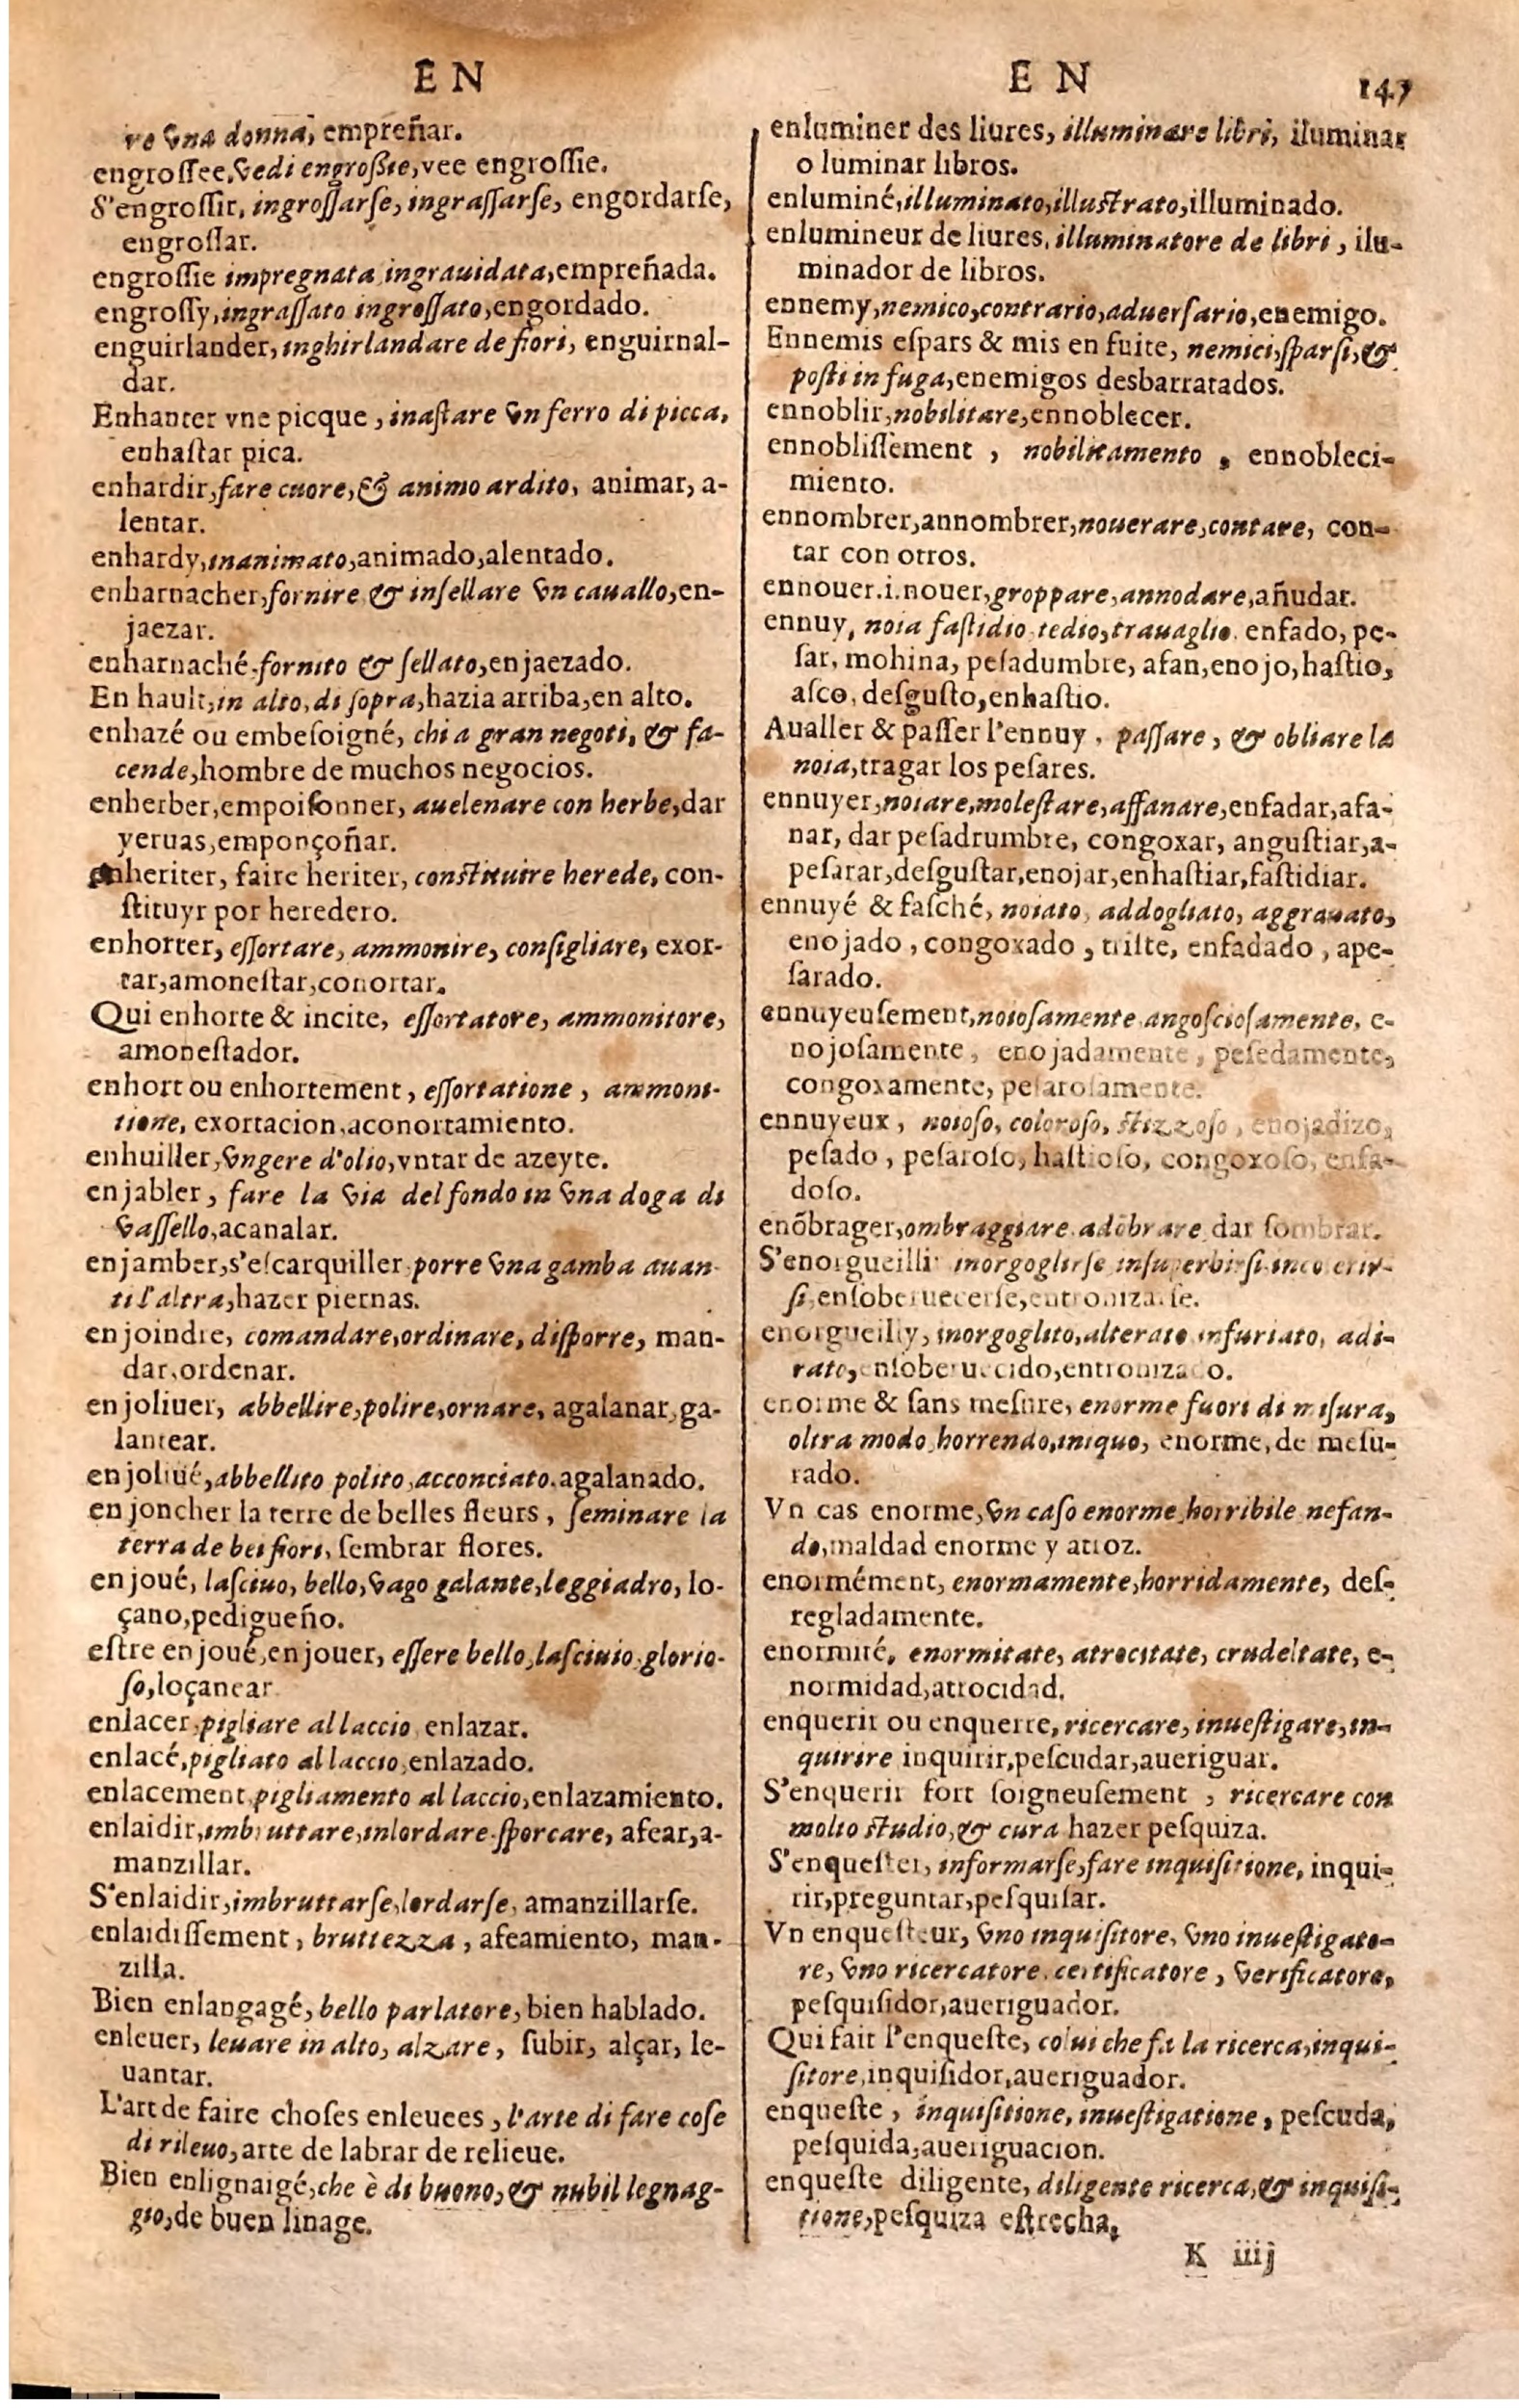 EN
re vna donna, empreñar.
engrossee, vedi engroßie, vee engrossie.
S'engrossir, ingrossarse, ingrassarse, engordarse,
engrossar.
engrossie impregnata ingrauidata, empreñada.
engrossy, ingrassato ingrossato, engordado.
enguirlander, inghirlandare de fiori, enguirnal-
dar.
Enhanter vne picque, inastare vn ferro di picca,
enhastar pica.
enhardir, fare cuore, & animo ardito, animar, a-
lentar.
enhardy, inanimato, animado, alentado.
enharnacher, fornire & insellare vn cauallo, en-
jaezar.
enharnaché, fornito & sellato, enjaezado.
En hault, in alto, di sopra, hazia arriba, en alto.
enhazé ou embesoigné, chi a gran negoti, & fa-
cende, hombre de muchos negocios.
enherber, empoisonner, auelenare con herbe, dar
yeruas, emponçoñar.
enheriter, faire heriter, constituire herede, con-
stituyr por heredero.
enhorter, essortare, ammonire, consigliare, exor-
tar, amonestar, conortar.
Qui enhorte & incite, essortatore, ammonitore,
amonestador.
enhort ou enhortement, essortatione, ammoni-
tione, exortacion, aconortamiento.
enhuiller, vngere d'olio, vntar de azeyte.
enjabler, fare la via del fondo in vna doga di
vassello, acanalar.
enjamber, s'escarquiller porre vna gamba auan-
ti l'altra, hazer piernas.
enjoindre, comandare, ordinare, disporre, man-
dar, ordenar.
enjoliuer, abbellire, polire, ornare, agalanar, ga-
lantear.
enjoliué, abbellito polito, acconciato, agalanado.
enjoncher la terre de belles fleurs, seminare la
terra de bei fiori, sembrar flores.
enjoué, lasciuo, bello, vago galante, leggiadro, lo-
çano, pedigueño.
estre enjoué, enjouer, essere bello, lasciuio, glorio-
so, loçanear
enlacer, pigliare al laccio, enlazar.
enlacé, pigliato al laccio, enlazado.
enlacement, pigliamento al laccio, enlazamiento.
enlaidir, imbruttare, inlordare, sporcare, afear, a-
manzillar.
S'enlaidir, imbruttarse, lordarse, amanzillarse.
enlaidissement, bruttezza, afeamiento, man-
zilla.
Bien enlangagé, bello parlatore, bien hablado.
enleuer, leuare in alto, alzare, subir, alçar, le-
uantar.
L'art de faire choses enleuees, l'arte di fare cose
di rileuo, arte de labrar de relieue.
Bien enlignaigé, che è di buono, & nubil legnag-
gio, de buen linage.
EN 147
enluminer des liures, illuminare libri, iluminar
o luminar libros.
enluminé, illuminato, illustrato, illuminado.
enlumineur de liures, illuminatore de libri, ilu-
minador de libros.
ennemy, nemico, contrario, aduersario, enemigo.
Ennemis espars & mis en fuite, nemici, sparsi, &
posti in fuga, enemigos desbarratados.
ennoblir, nobilitare, ennoblecer.
ennoblissement, nobilitamento, ennobleci-
miento.
ennombrer, annombrer, nouerare, contare, con-
tar con otros.
ennouer.i.nouer, groppare, annodare, añudar.
ennuy, noia fastidio, tedio, trauaglio, enfado, pe-
sar, mohina, pesadumbre, afan, enojo, hastio,
asco, desgusto, enhastio.
Aualler & passer l'ennuy, passare, & obliare la
noia, tragar los pesares.
ennuyer, noiare, molestare, affanare, enfadar, afa-
nar, dar pesadrumbre, congoxar, angustiar, a-
pesarar, desgustar, enojar, enhastiar, fastidiar.
ennuyé & fasché, noiato, addogliato, aggrauato,
enojado, congoxado, triste, enfadado, ape-
sarado.
ennuyeusement, noiosamente, angosciosamente, e-
nojosamente, enojadamente, pesedamente,
congoxamente, pesarosamente.
ennuyeux, noioso, coloroso, stizzoso, enojadizo,
pesado, pesaroso, hastioso, congoxoso, enfa-
doso.
enõbrager, ombraggiare, adõbrare, dar sombrar.
S'enorgueillir inorgoglirse insuperbirsi incolerir-
si, ensoberuecerse, entronizarse.
enorgueilly, inorgoglito, alterato infuriato, adi-
rato, ensoberuecido, entronizado.
enorme & sans mesure, enorme fuori di misura,
oltra modo, horrendo, iniquo, enorme, de mesu-
rado.
Vn cas enorme, vn caso enorme, horribile nefan-
do, maldad enorme y atroz.
enormément, enormamente, horridamente, des-
regladamente.
enormité, enormitate, atrocitate, crudeltate, e-
normidad, atrocidad.
enquerir ou enquerre, ricercare, inuestigare, in-
quirire inquirir, pescudar, aueriguar.
S'enquerir fort soigneusement, ricercare con
molto studio, & cura hazer pesquiza.
S'enquester, informarse, fare inquisitione, inqui-
rir, preguntar, pesquisar.
Vn enquesteur, vno inquisitore, vno inuestigato-
re, vno ricercatore, certificatore, verificatore,
pesquisidor, aueriguador.
Qui fait l'enqueste, colui che fa la ricerca, inqui-
sitore, inquisidor, aueriguador.
enqueste, inquisitione, inuestigatione, pescuda,
pesquida, aueriguacion.
enqueste diligente, diligente ricerca, & inquisi-
tione, pesquiza estrecha.
K iiij